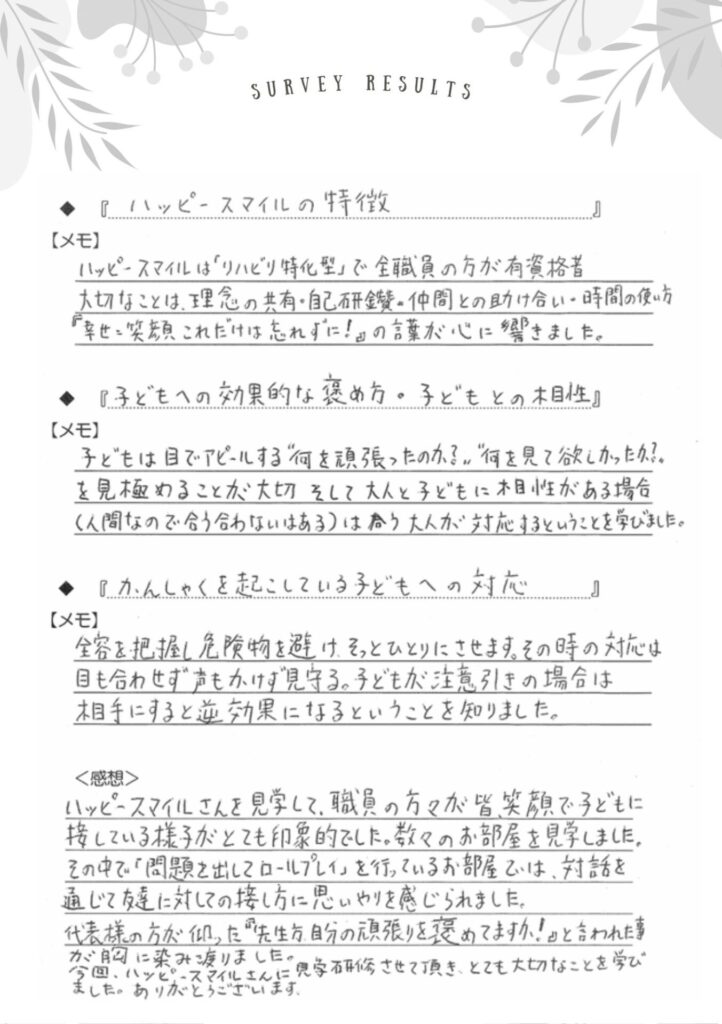 SURVEY RESULTS
◆ 『 ハッピースマイルの特徴 』
【メモ】
ハッピースマイルは「リハビリ特化型」で全職員の方が有資格者
大切なことは、理念の共有・自己研鑽・仲間との助け合い・時間の使い方
『幸せ=笑顔 これだけは忘れずに!』の言葉が心に響きました。
◆ 『 子どもへの効果的な褒め方・子どもとの相性 』
【メモ】
子どもは目でアピールする“何を頑張ったのか?„“何を見て欲しかったか?„
を見極めることが大切 そして大人と子どもに相性がある場合
(人間なので合う合わないはある)は合う大人が対応するということを学びました。
◆ 『 かんしゃくを起こしている子どもへの対応 』
【メモ】
全容を把握し危険物を避け、そっとひとりにさせます。その時の対応は
目も合わせず声もかけず見守る。子どもが注意引きの場合は
相手にすると逆効果になるということを知りました。
<感想>
ハッピースマイルさんを見学して、職員の方々が皆、笑顔で子どもに
接している様子がとても印象的でした。数々のお部屋を見学しました。
その中で「問題を出してロールプレイ」を行っているお部屋では、対話を
通じて友達に対しての接し方に思いやりを感じられました。
代表様の方が仰った『先生方、自分の頑張りを褒めてますか!』と言われた事
が胸に染み渡りました。
今回、ハッピースマイルさんに見学研修させて頂き、とても大切なことを学び
ました。ありがとうございます。